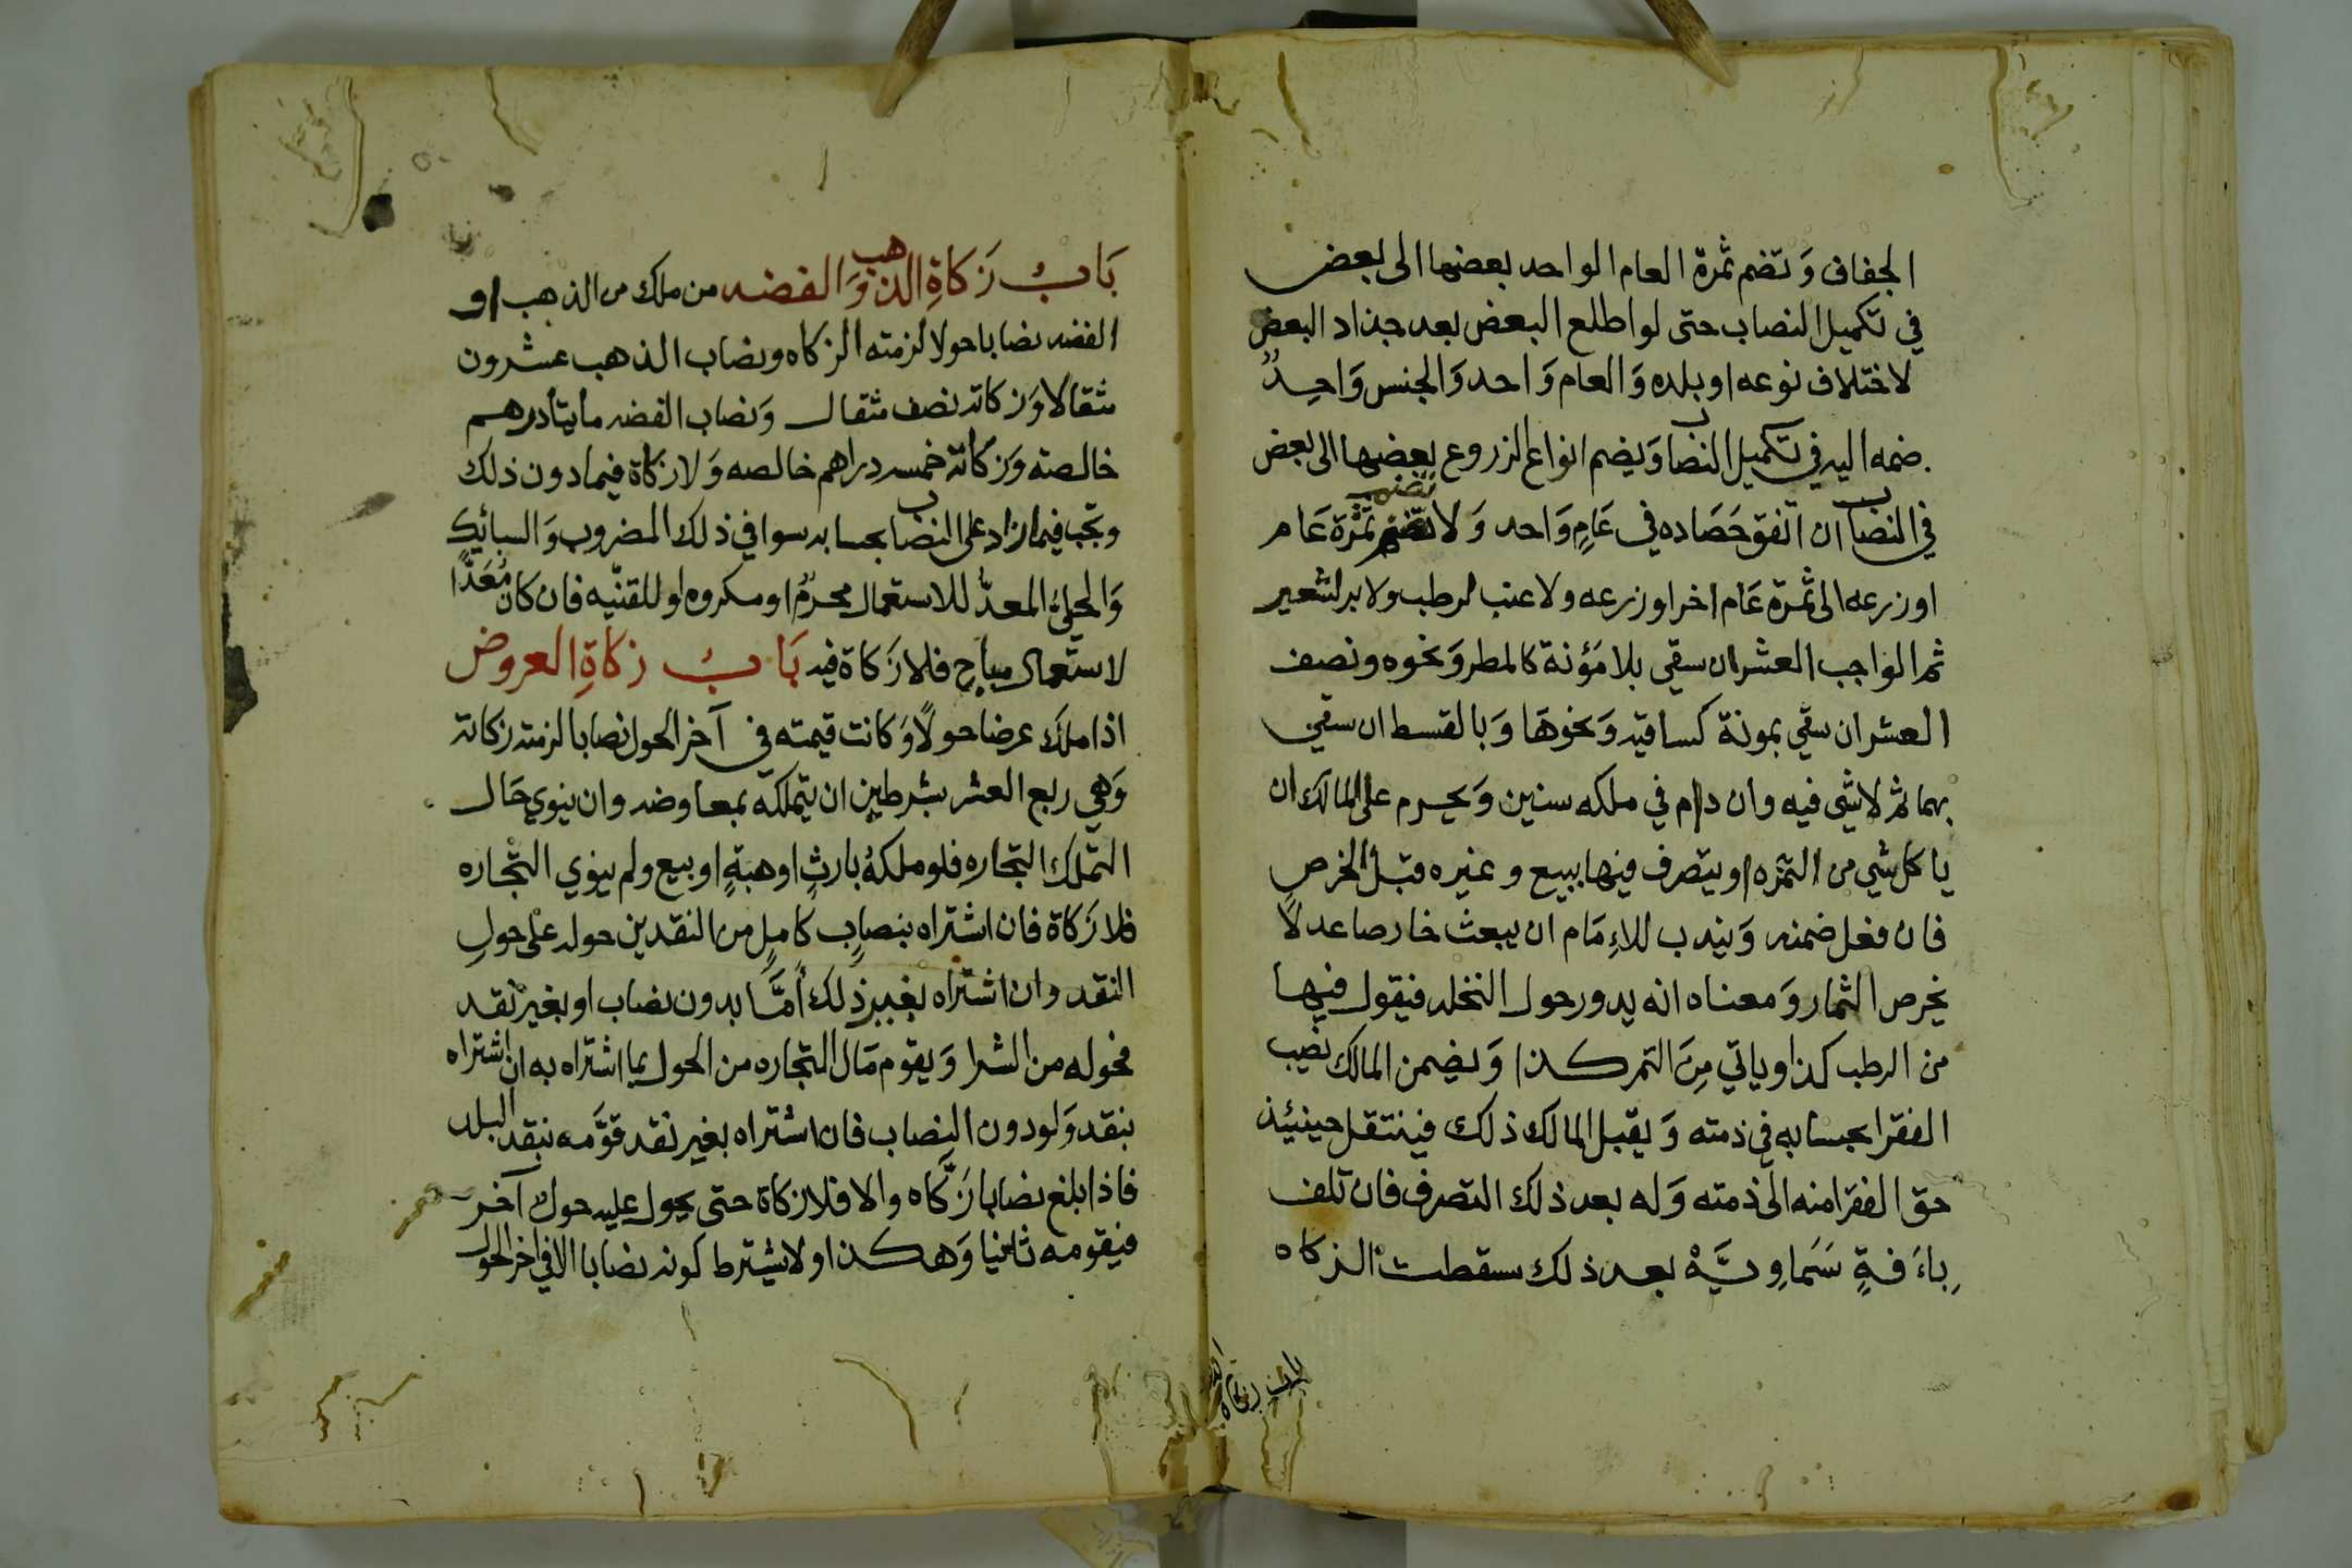 الجفاف وَتضم ثمرة العام الواحد بعضها الى بعض
في تكميل النصاب حتى لو اطلع البعض بعد جذاد البعض
لاختلاف نوعه او بلده وَالعام وَاحد وَالجنس وَاحِدٌ
ضمه اليه في تكميل النصاب وَيضم انواع الزروع بعضها الى بعض
في النصاب ان اتفق حَصَاده في عَامٍ وَاحد وَلا تضم ثمرة عَام
او زرعه الى ثمرة عَام اخر او زرعه ولا عنب لرطب ولا بر لشعير
ثم الواجب العشر ان سقي بلا مَؤنة كالمطر وَنحوه ونصف
العشر ان سقي بمونة كساقيه وَنحوهَا وَبالقسط ان سقي
بهما ثم لا شي فيه وان دام في ملكه سنين وَيحرم على المالك ان
ياكل شي من الثمره او يتصرف فيها ببيع وغيره قبل الخرص
فان فعل ضمنه وَيندب للاِمَام ان يبعث خارصا عدلاً
يخرص الثمار وَمعناه انه يدور حول النخله فيقول فيها
من الرطب كذا وياتي مِنَ التمر كذا وَيضمن المالك نصيب
الفقرا بحسابه في ذمته وَيقبل المالك ذلك فينتقل حينيئذ
حق الفقرا منه الى ذمته وَله بعد ذلك التصرف فان تلف
بِاءَفةٍ سَمَاوِيَّهْ بعد ذلك سقطت الزكاه
باب زكاة
بَابُ زَكاةِ الذهب وَالفضه من ملك من الذهب او
الفضه نصابا حولا لزمته الزكاه ونصاب الذهب عشرون
مثقالا وَزكاته نصف مثقال وَنصاب الفضه مايتا درهم
خالصته وَزكاته خمسه دراهم خالصه وَلا زكاة فيما دون ذلك
وتجب فيما زاد على النصاب بحسابه سوا في ذلك المضروب وَالسبائك
وَالحلىُ المعدُّ للاستعمال محرمٌ او مكروه او للقنيّه فان كان مُعَدًّا
لاستعمال مباح فلا زَكاة فيه بَابُ زكاةِ العروض
اذا ملك عرضا حولاً وَكانت قيمته في آخر الحول نصابا لزمته زكاته
وَهي ربع العشر بشرطين ان يتملكه بمعاوضه وان ينوي حَال
التملك التجاره فلو ملكهُ بارثٍ او هبةٍ او بيع ولم ينوي التجاره
فلا زَكاة فان اشتراه بنصابٍ كاملٍ من النقدين حوله على حولِ
النقد وان اشتراه بغير ذلك أمَّا بدون نصاب او بغير نقد
فحوله من الشرا وَيقوم مَال التجاره من الحول بما اشتراه به ان اشتراه
بنقد وَلو دون النصاب فان اشتراه بغير نقد قوَّمه بنقد البلد
فاذا بلغ نصابا زَكَّاه والا فلا زكاة حتى يحول عليه حول آخر
فيقومه ثانيا وَهكذا ولا يشترط كونه نصابا الا في اخر الحول